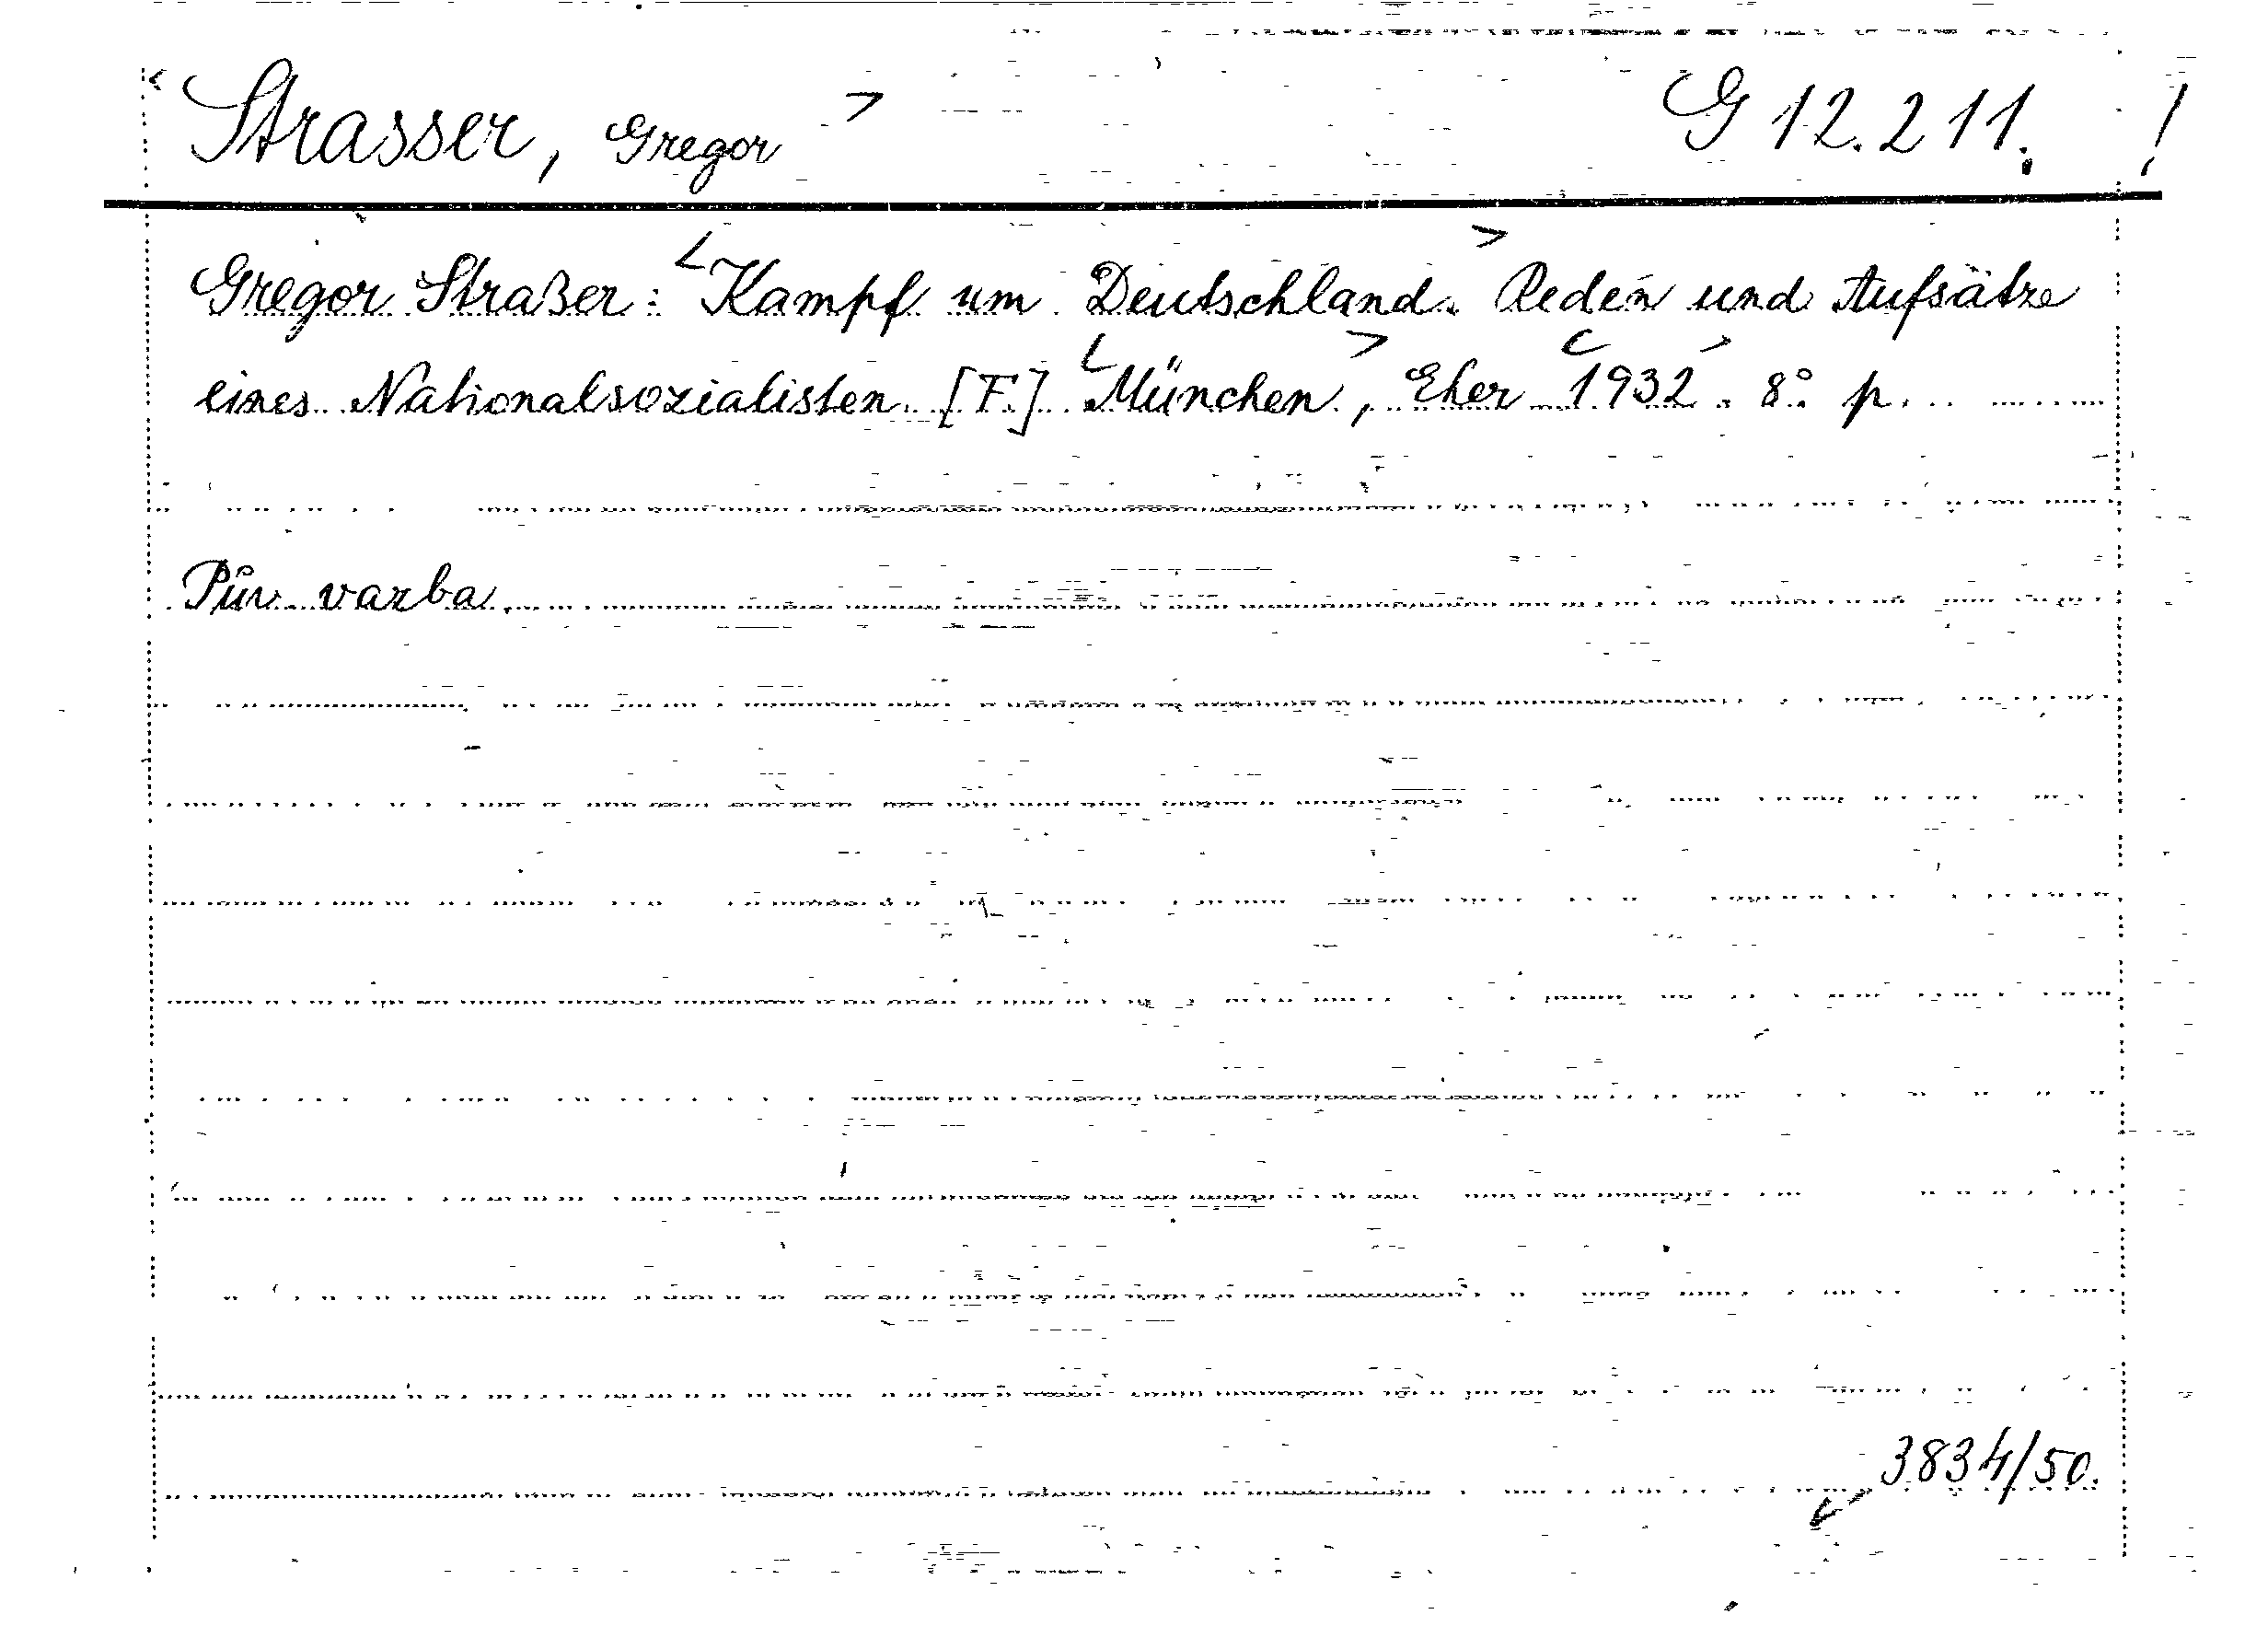 < Strasser, Gregor > G 12.211. !
Gregor Straßer: <Kampf um Deutschland.> Reden und Aufsätze
eines Nationalsozialisten. [F.] <München>, Eher <1932>. 8° p.
Pův. vazba.
3834/50.